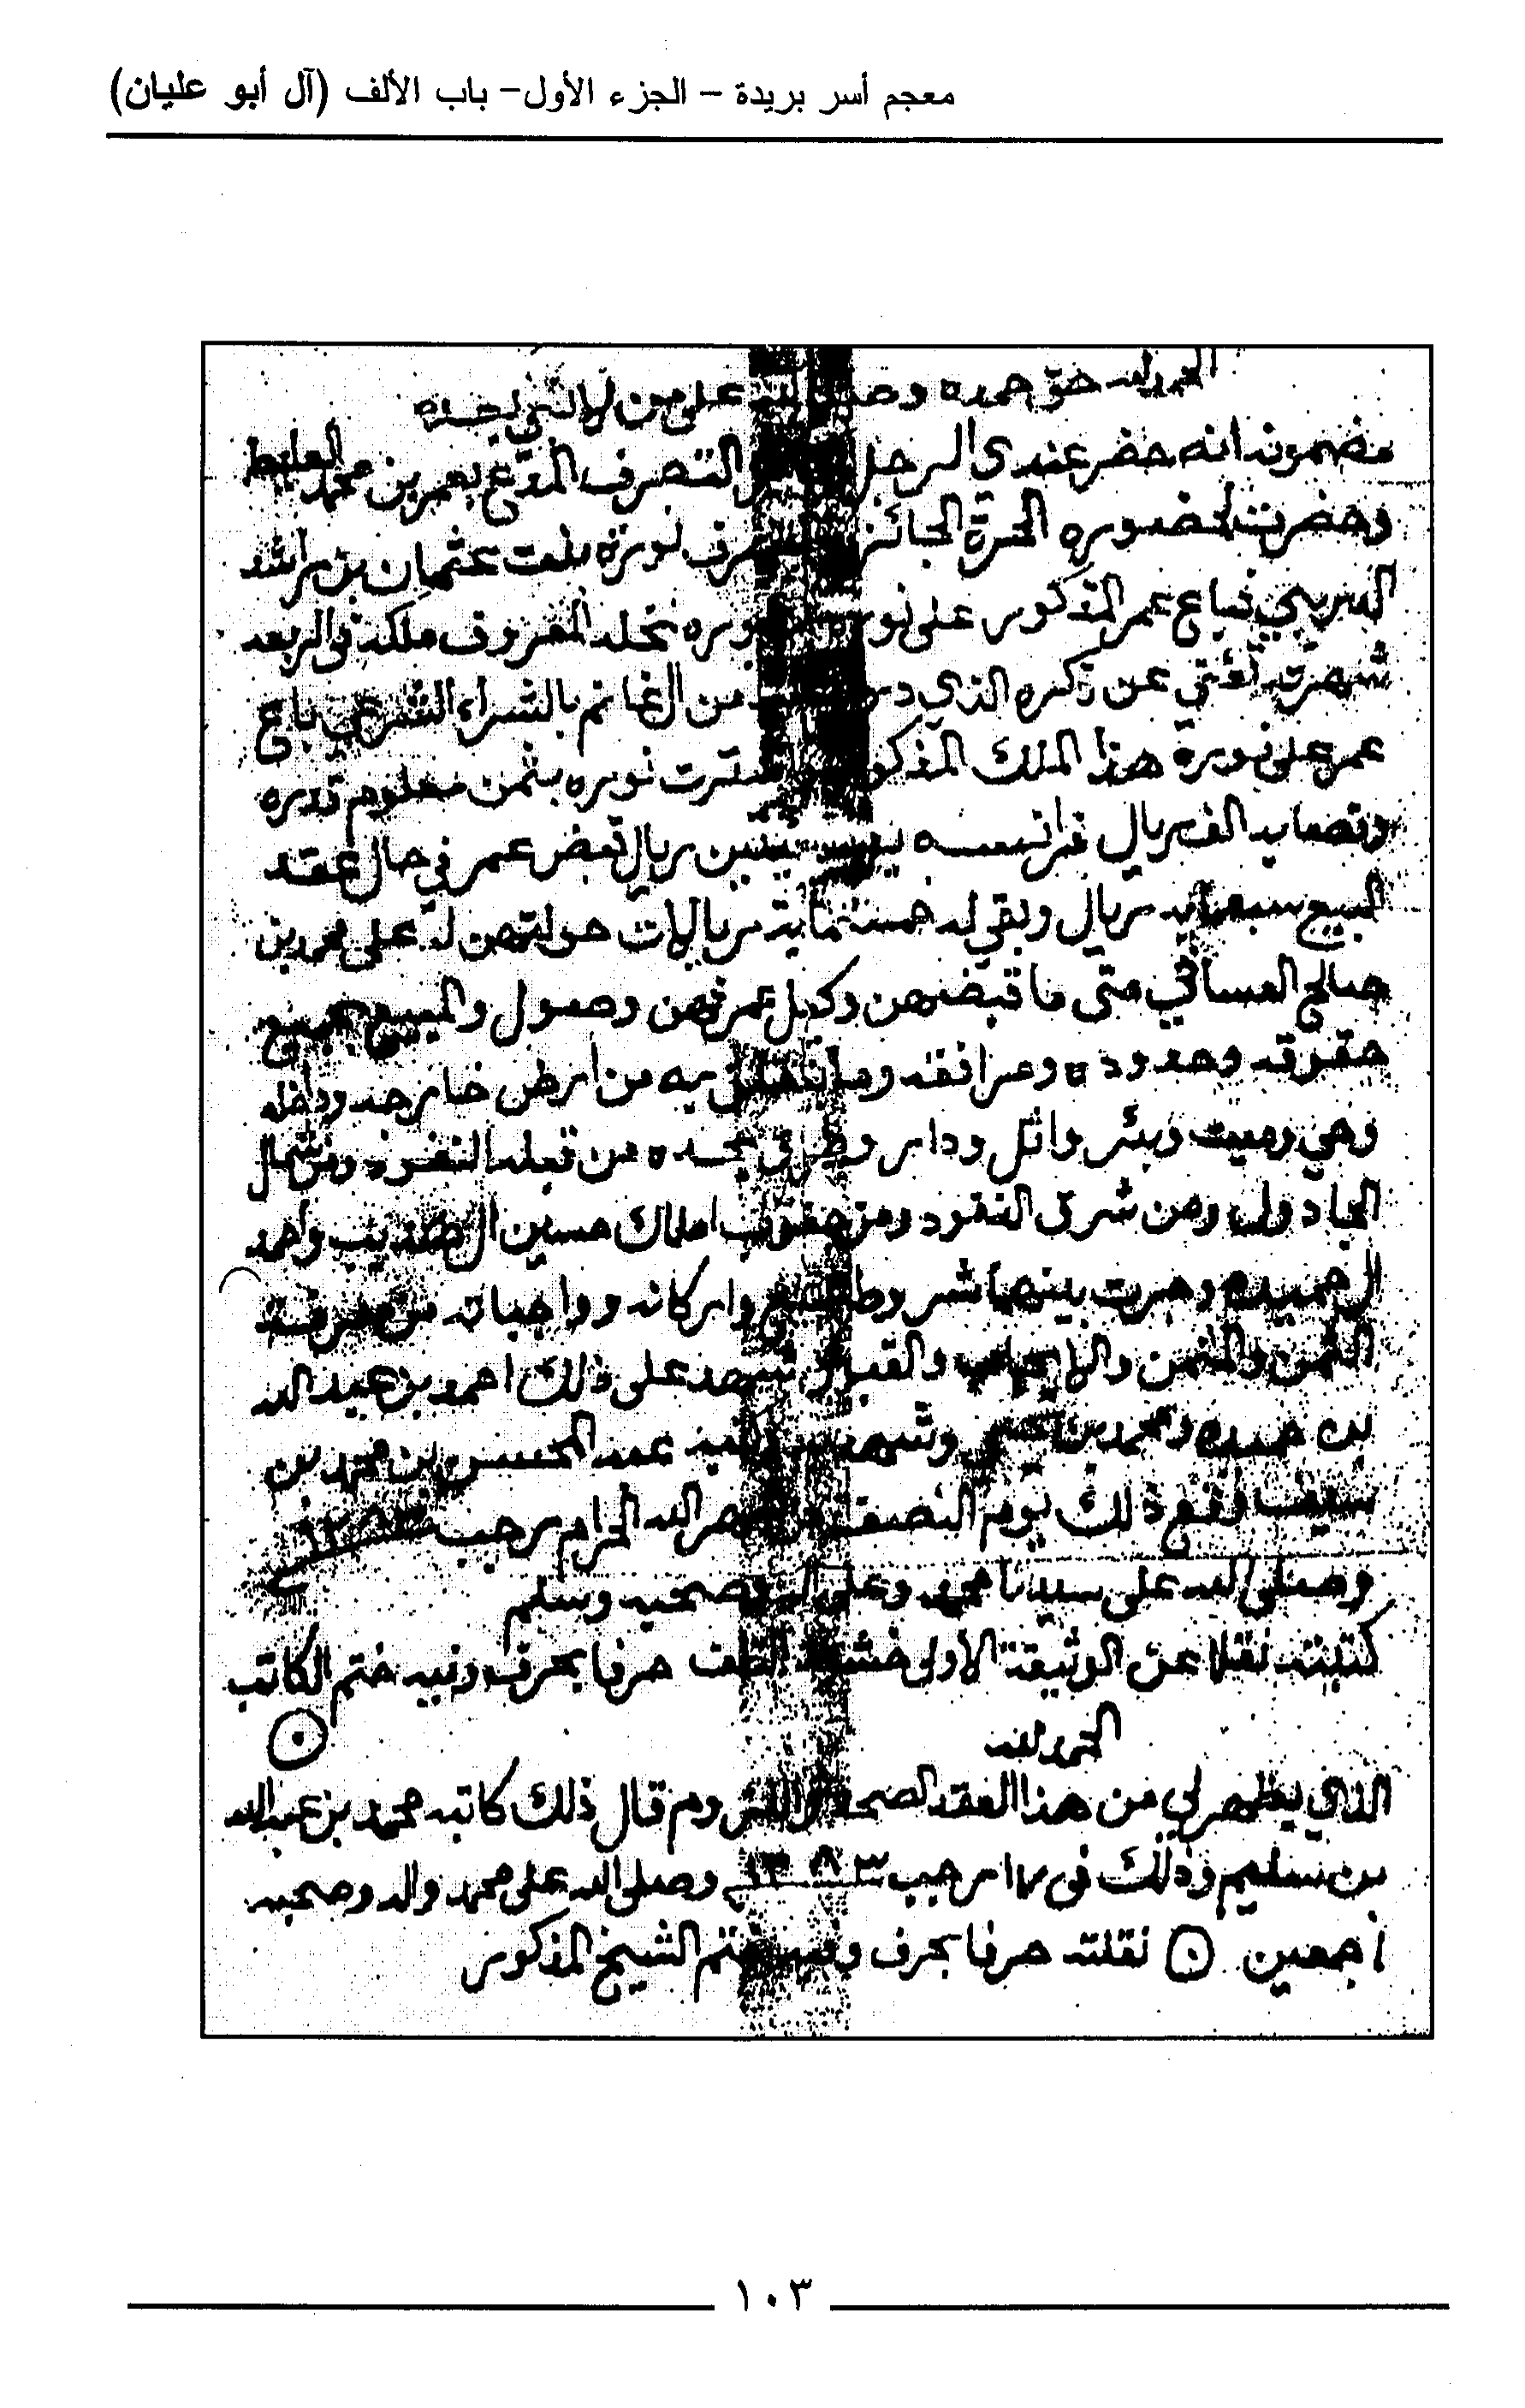 معجم أسر بريدة – الجزء الأول– باب الألف (آل أبو عليان)
الحمد لله حق حمده وصلى الله على من لا نبي بعده
مضمونه انه حضر عندي الرجل التصرف المدعو بعمر بن محمد العليط
وحضرت لحضوره الحرة الجائز نويرة بنت عثمان بن راشد
فباع عمر المذكور على نويره نويره نخله المعروف ملكه في الربعه
شهرته تغني عن ذكره الذي من الغانم بالشراء الشرعي باع
عمر على نويرة هذا الملك المذكور واشترت نويره بثمن معلوم قدره
ونصابه الف ريال فرانسه ريال قبض عمر في حال عقد
البيع سبعمايه ريال وبقي له خمسمائة ريالات حولتهن له على محمد بن
صالح العسافي متى ما قبضهن وكيل عمر فهن وصول والمبيع بجميع
حقوقه وحدوده ومرافقه وما من ارض خارجه وداخله
وهي وميت وبئر واثل ودار وطرقي يحده من قبله النفود ومن شمال
ومن شرق النفود ومن جنوب املاك حسين ال واحمد
ال حميده وجرت بينهما شروط واركانه وواجباته من معرفة
الثمن والمثمن والايجاب والقبول شهد على ذلك احمد بن عبدالله
بن حميده ومحمد بن وشهد به وكتبه عبد المحسن بن محمد بن
سيف وقع ذلك يوم النصف من شهر الله الحرام رجب ١٢٨٣
وصلى الله على سيدنا محمد وعلى اله وصحبه وسلم
كتبته نقلا عن الوثيقة الأولى خشية التلف حرفا بحرف وفيه ختم الكاتب
الحمد لله
الذي يظهر لي من هذا العقد الصحة واللزوم قال ذلك كاتبه محمد بن عبدالله
بن سليم وذلك في رجب ١٢٨٣ وصلى الله على محمد واله وصحبه
اجمعين نقلته حرفا بحرف وفيه ختم الشيخ المذكور
١٠٣